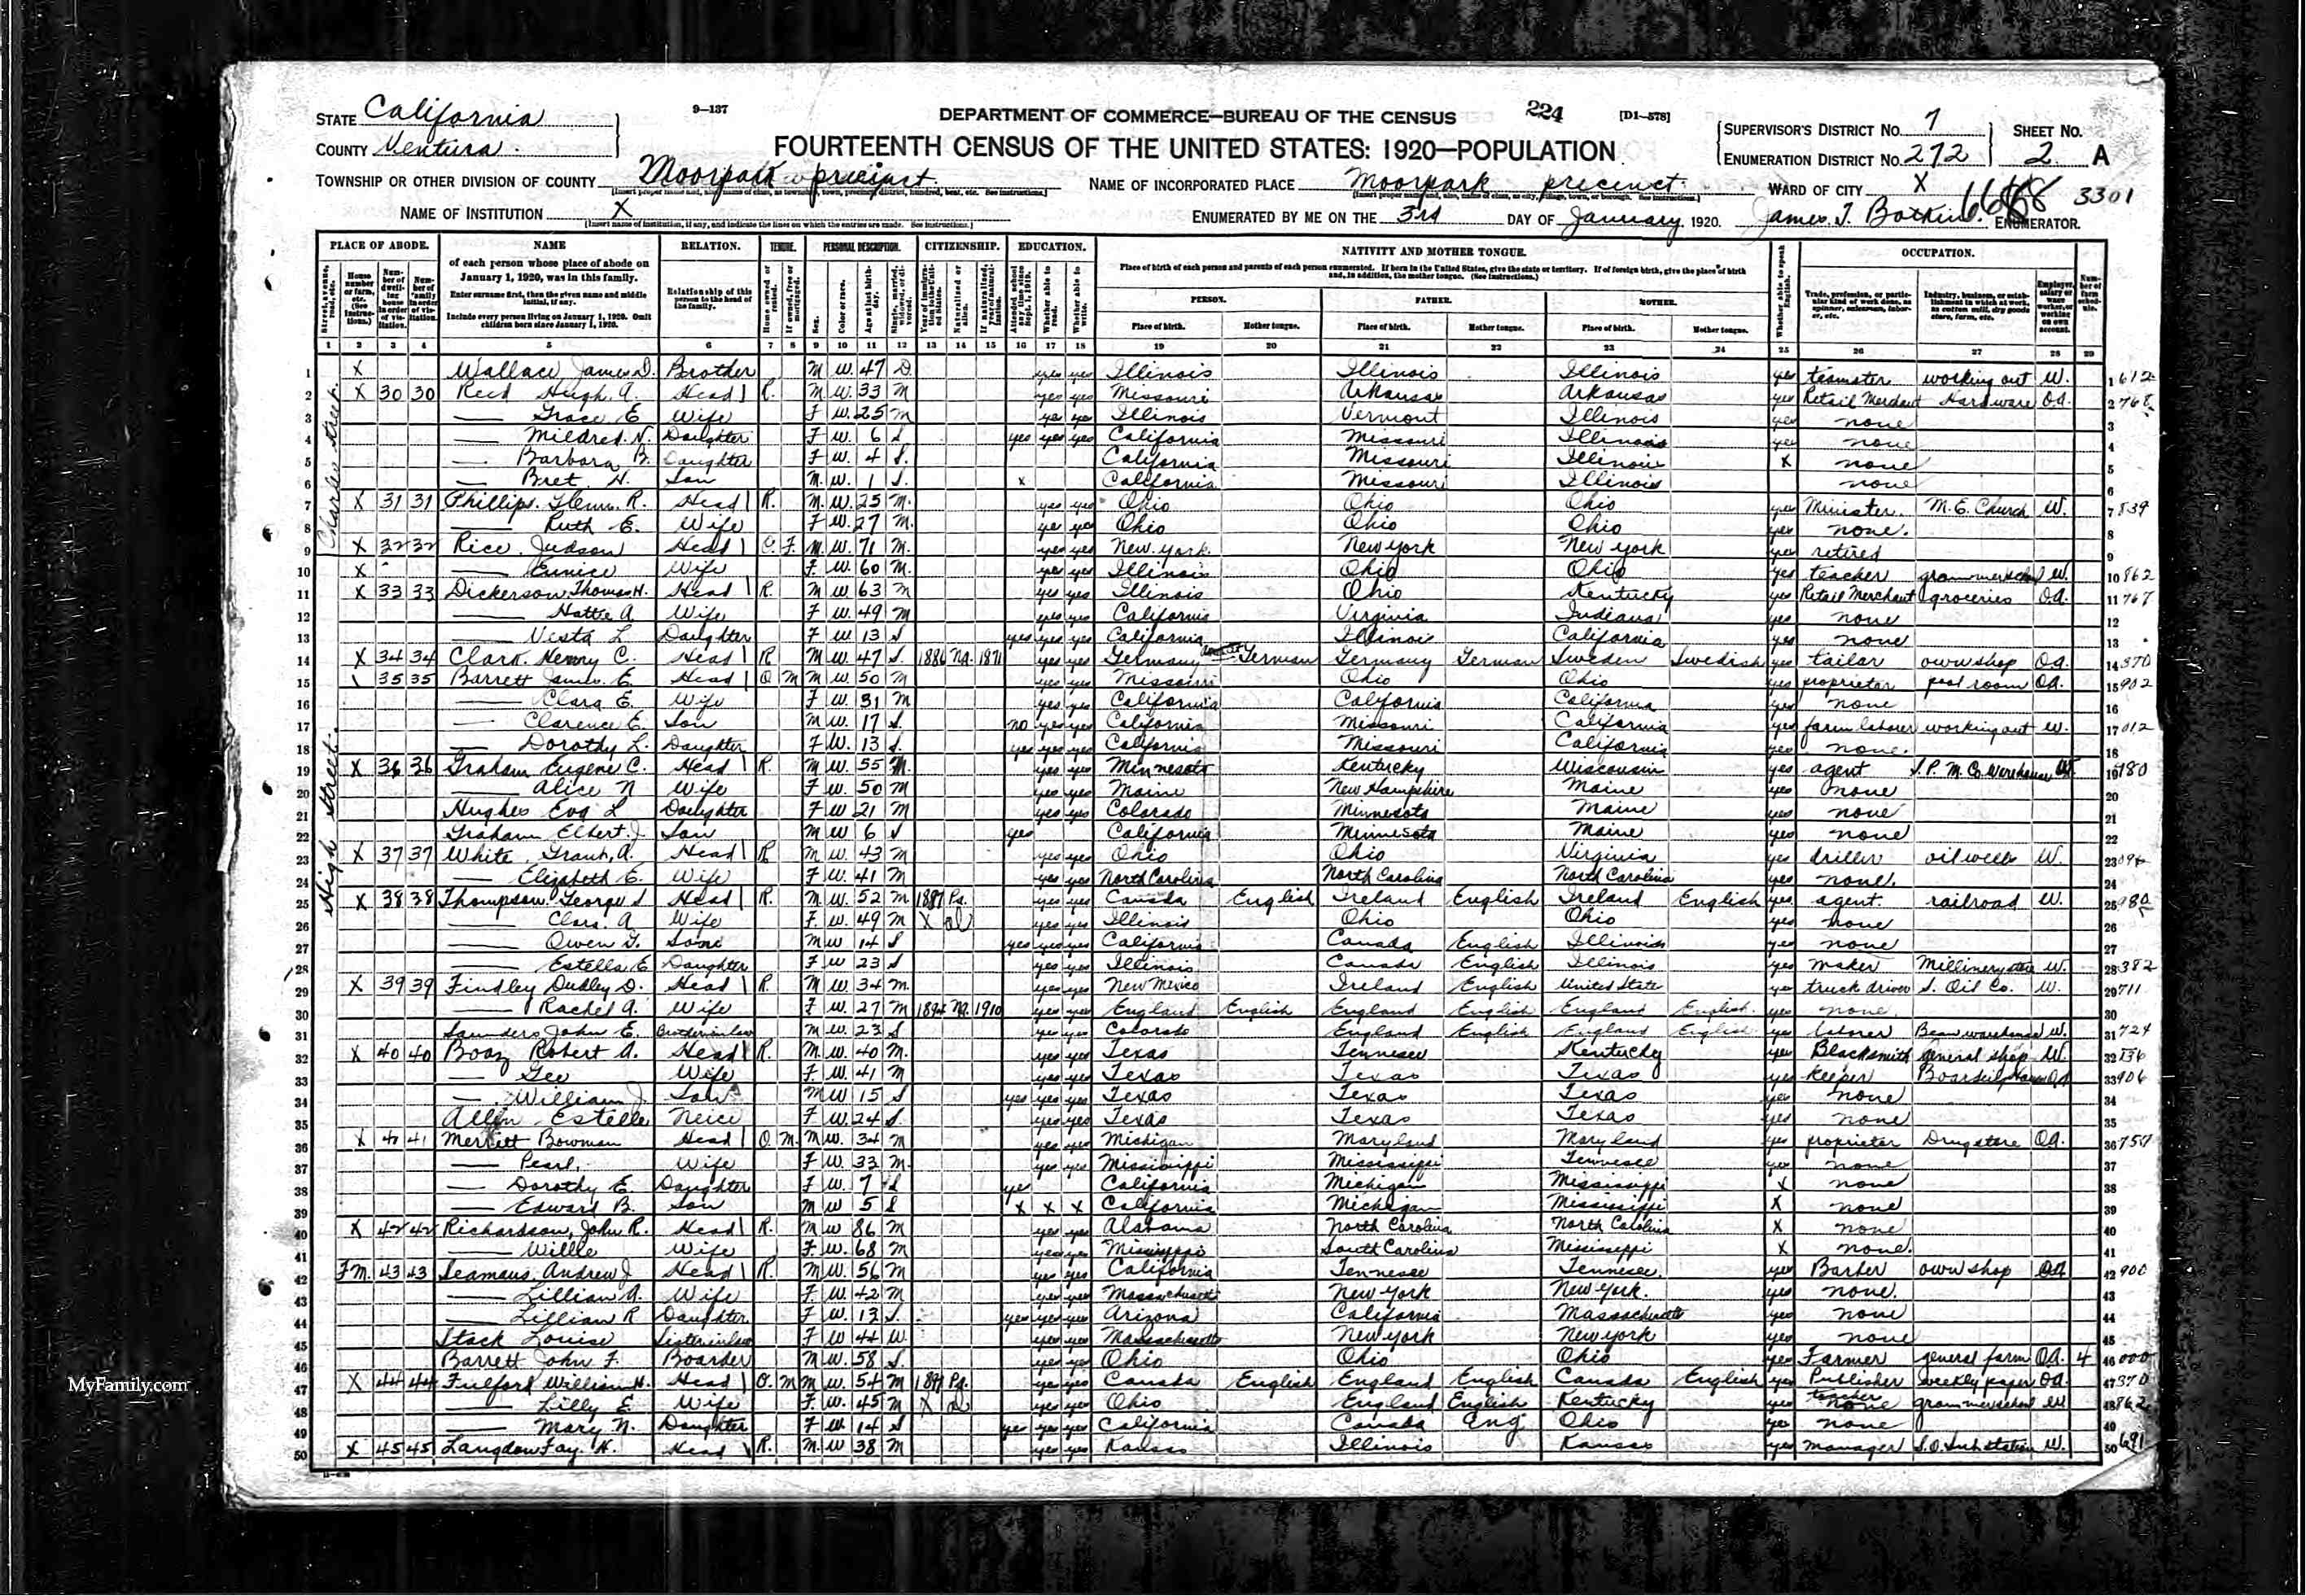 9—137
DEPARTMENT OF COMMERCE—BUREAU OF THE CENSUS
224
[D1—578]
STATE California
COUNTY Ventura.
FOURTEENTH CENSUS OF THE UNITED STATES: 1920—POPULATION
SUPERVISOR'S DISTRICT NO. 7
ENUMERATION DISTRICT NO. 272
SHEET NO. 2 A
TOWNSHIP OR OTHER DIVISION OF COUNTY Moorpark precinct.
NAME OF INCORPORATED PLACE Moorpark precinct.
WARD OF CITY X
3301
NAME OF INSTITUTION X
[Insert name of institution, if any, and indicate the lines on which the entries are made. See instructions.]
ENUMERATED BY ME ON THE 3rd DAY OF January, 1920. James. T. Botkin. ENUMERATOR.
PLACE OF ABODE. NAME RELATION. TENURE. PERSONAL DESCRIPTION. CITIZENSHIP. EDUCATION. NATIVITY AND MOTHER TONGUE. OCCUPATION.
of each person whose place of abode on January 1, 1920, was in this family.
Enter surname first, then the given name and middle initial, if any.
Include every person living on January 1, 1920. Omit children born since January 1, 1920.
Relationship of this person to the head of the family.
Place of birth of each person and parents of each person enumerated. If born in the United States, give the state or territory. If of foreign birth, give the place of birth and, in addition, the mother tongue. (See Instructions.)
PERSON. FATHER. MOTHER.
Place of birth. Mother tongue. Place of birth. Mother tongue. Place of birth. Mother tongue.
1 2 3 4 5 6 7 8 9 10 11 12 13 14 15 16 17 18 19 20 21 22 23 24 25 26 27 28 29
Charles Street.
High Street.
1 X Wallace James D. Brother M W. 47 D. yes yes Illinois Illinois Illinois yes teamster working out W. 1 612
2 X 30 30 Reed Hugh. A. Head R. M W. 33 M yes yes Missouri Arkansas Arkansas yes Retail Merchant Hardware O.A. 2 768
3 — Grace E Wife F W. 25 M yes yes Illinois Vermont Illinois yes none 3
4 — Mildred. N. Daughter F W. 6 S. yes yes yes California Missouri Illinois yes none 4
5 — Barbara B. Daughter F W. 4 S. California Missouri Illinois X none 5
6 — Bret. H. Son M. W. 1 S. x California Missouri Illinois none 6
7 X 31 31 Phillips. Glenn. R. Head R. M. W. 25 M. yes yes Ohio Ohio Ohio yes Minister. M. E. Church W. 7 839
8 — Ruth E. Wife F W. 27 M. yes yes Ohio Ohio Ohio yes none. 8
9 X 32 32 Rice. Judson Head O. F. M. W. 71 M. yes yes New York. New York New York yes retired 9
10 X — Eunice Wife F. W. 60 M. yes yes Illinois Ohio Ohio yes teacher grammer school W. 10 862
11 X 33 33 Dickerson Thomas H. Head R. M W 63 M yes yes Illinois Ohio Kentucky yes Retail Merchant groceries O.A. 11 767
12 — Hattie A Wife F W. 49 M yes yes California Virginia Indiana yes none 12
13 — Vesta L Daughter F W 13 S yes yes yes California Illinois California yes none 13
14 X 34 34 Clark. Henry C. Head R M W. 47 S. 1886 Na. 1871 yes yes Germany German Germany German Sweden Swedish yes tailor own shop O.A. 14 370
15 35 35 Barrett James. E Head O M M W. 50 M yes yes Missouri Ohio Ohio yes proprietor pool room O.A. 15 902
16 — Clara E. Wife F. W. 31 M yes yes California California California yes none 16
17 — Clarence E. Son M W. 17 S. no yes yes California Missouri California yes farm laborer working out W. 17 012
18 — Dorothy L. Daughter F W. 13 S. yes yes yes California Missouri California yes none. 18
19 X 36 36 Graham Eugene C. Head R. M W. 55 M. yes yes Minnesota Kentucky Wisconsin yes agent S. P. M. Co. Warehouse W. 19 180
20 — Alice N Wife F W. 50 M yes yes Maine New Hampshire Maine yes none 20
21 Hughes Eva L Daughter F W 21 M yes yes Colorado Minnesota Maine yes none 21
22 Graham Elbert. J. Son M W 6 S yes California Minnesota Maine yes none 22
23 X 37 37 White. Grant. A. Head R M W. 43 M yes yes Ohio Ohio Virginia yes driller oil wells W. 23 094
24 — Elizabeth E. Wife F W. 41 M yes yes North Carolina North Carolina North Carolina yes none. 24
25 X 38 38 Thompson. George S Head R. M W. 52 M 1887 Pa. yes yes Canada English Ireland English Ireland English yes. agent. railroad W. 25 980
26 — Clara. A. Wife F. W. 49 M X al yes yes Illinois Ohio Ohio yes none 26
27 — Owen T. Sone M W 14 S yes yes yes California Canada English Illinois yes none 27
28 — Estella E Daughter F W 23 S yes yes Illinois Canada English Illinois yes maker Millinery store W. 28 382
29 X 39 39 Findley Dudley D. Head R. M W 34 M. yes yes New Mexico Ireland English United State yes truck driver S. Oil Co. W. 29 711
30 — Rachel A. Wife F. W. 27 M 1894 Na. 1910 yes yes England English England English England English. yes none. 30
31 Saunders John E. Brotherinlaw M W. 23 S yes yes Colorado England English England English yes laborer Bean warehouse W. 31 724
32 X 40 40 Boaz Robert A. Head R. M. W. 40 M. yes yes Texas Tennesee Kentucky yes Blacksmith general shop W. 32
33 — Gee Wife F. W. 41 M yes yes Texas Texas Texas yes keeper Boarding House O.A 33 906
34 — William J. Son M W 15 S yes yes yes Texas Texas Texas yes none 34
35 Allen Estelle Neice F W. 24 S. yes yes Texas Texas Texas yes none 35
36 X 41 41 Merritt Bowman Head O M. M W. 34 M yes yes Michigan Maryland Maryland yes proprietor Drugstore O.A. 36 757
37 — Pearl. Wife F W. 33 M. yes yes Mississippi Mississippi Tennesee yes none 37
38 — Dorothy E. Daughter F W. 7 S yes California Michigan Mississippi X none 38
39 — Edward B. Son M W 5 S X X X California Michigan Mississippi X none 39
40 X 42 42 Richardson, John R. Head R. M W 86 M yes yes Alabama North Carolina North Carolina X none 40
41 — Willie Wife F. W. 68 M yes yes Mississippi South Carolina Mississippi X none. 41
42 F.M. 43 43 Seamans Andrew J Head R. M W. 56 M yes yes California Tennesee Tennesee. yes Barber own shop O.A 42 900
43 — Lillian A. Wife F. W. 42 M yes yes Massachusetts New York New York. yes none. 43
44 — Lillian R Daughter F W. 13 S. yes yes yes Arizona California Massachusetts yes none 44
45 Stack Louise Sisterinlaw F W 44 W. yes yes Massachusetts New York New York yes none 45
46 Barrett John F. Boarder M W. 58 S. yes yes Ohio Ohio Ohio yes Farmer general farm O.A. 4 46 000
47 X 44 44 Fulford William H. Head O. M M W. 54 M 1891 Pa. yes yes Canada English England English Canada English yes Publisher weekly paper O.A. 47 370
48 — Lilly E Wife F. W. 45 M X al yes yes Ohio England English Kentucky yes teacher none grammer school W 48 862
49 — Mary N. Daughter F W 14 S yes yes yes California Canada Eng Ohio yes none 49
50 X 45 45 Langdon Fay. H. Head R. M. W 38 M yes yes Kansas Illinois Kansas yes manager S.O. Sub station W. 50 691
MyFamily.com